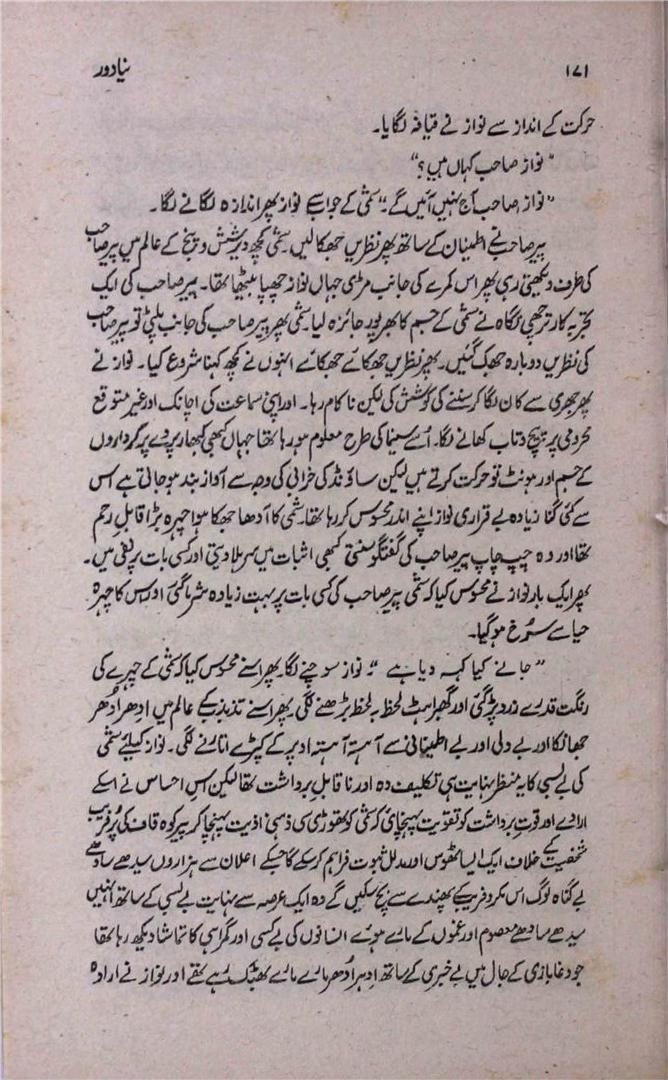 ۱۷۱ نیا دور
حرکت کے انداز سے نواز نے قیافہ لگایا۔
"نواز صاحب کہاں ہیں؟"
"نواز صاحب آج نہیں آئیں گے۔" سَمّی کے جواب سے نواز پھر اندازہ لگانے لگا۔
پیر صاحب نے اطمینان کے ساتھ پھر نظریں جھکالیں۔ سَمّی کچھ دیر شش و پنج کے عالم میں پیر صاحب
کی طرف دیکھتی رہی پھر اس کمرے کی جانب مڑی جہاں نواز چھپا بیٹھا تھا۔ پیر صاحب کی ایک
تجربہ کار ترچھی نگاہ نے سمّی کے جسم کا بھرپور جائزہ لیا۔ سمّی پھر پیر صاحب کی جانب پلٹی تو پیر صاحب
کی نظریں دوبارہ جھک گئیں۔ پھر نظریں جھکائے جھکائے انہوں نے کچھ کہنا شروع کیا۔ نواز نے
پھر جھری سے کان لگا کر سننے کی کوشش کی لیکن ناکام رہا۔ اور اپنی سماعت کی اچانک اور غیر متوقع
محرومی پر پیچ و تاب کھانے لگا۔ اُسے سینما کی طرح معلوم ہو رہا تھا جہاں کبھی کبھار پردے پر کرداروں
کے جسم اور ہونٹ تو حرکت کرتے ہیں لیکن ساؤنڈ کی خرابی کی وجہ سے آواز بند ہو جاتی ہے اس
سے کئی گنا زیادہ بے قراری نواز اپنے اندر محسوس کر رہا تھا۔ سمّی کا آدھا جھکا ہوا چہرہ بڑا قابلِ رحم
تھا اور وہ چپ چاپ پیر صاحب کی گفتگو سنتی کبھی اثبات میں سر ہلا دیتی اور کسی بات پر نفی میں۔
پھر ایک بار نواز نے محسوس کیا کہ سمّی پیر صاحب کی کسی بات پر بہت زیادہ شرما گئی اور اس کا چہرہ
حیا سے سُرخ ہو گیا۔
"جانے کیا کہہ دیا ہے"۔ نواز سوچنے لگا۔ پھر اسنے محسوس کیا کہ سمّی کے چہرے کی
رنگت قدرے زرد پڑ گئی اور گھبراہٹ لحظہ بہ لحظہ بڑھنے لگی۔ پھر اسنے تذبذب کے عالم میں اِدھر اُدھر
جھانکا اور بے دلی اور بے اطمینانی سے آہستہ آہستہ اوپر کے کپڑے اتارنے لگی۔ نواز کیلئے سمّی
کی بے بسی کا یہ منظر نہایت ہی تکلیف دہ اور ناقابلِ برداشت تھا لیکن اس احساس نے اسکے
ارادے اور قوتِ برداشت کو تقویت پہنچائی کہ سمّی کو تھوڑی سی ذہنی اذیت پہنچا کر پیر کوہ قاف کی پُر فریب
شخصیت کے خلاف ایک ایسا ٹھوس اور مدلل ثبوت فراہم کر سکے گا جسکے اعلان سے ہزاروں سیدھے سادھے
بے گناہ لوگ اس مکر و فریب کے پھندے سے بچ سکیں گے وہ ایک عرصہ سے نہایت بے بسی کے ساتھ انہیں
سیدھے سادھے معصوم اور غموں کے مارے ہوئے انسانوں کی بے کسی اور گمراہی کا تماشا دیکھ رہا تھا
جو دغا بازی کے جال میں بے خبری کے ساتھ اِدھر اُدھر مارے مارے بھٹک رہے تھے اور نواز نے ارادہ